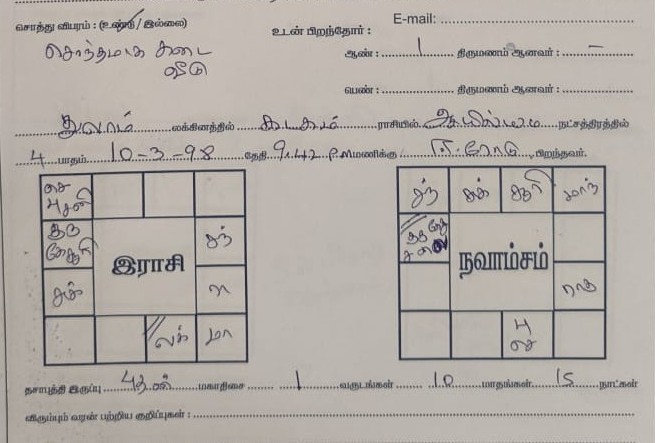 சொத்து விபரம் : (உண்டு / இல்லை)
E-mail:
சொந்தமாக கடை
வீடு
உடன் பிறந்தோர் :
ஆண் : 1 திருமணம் ஆனவர் : –
பெண் : திருமணம் ஆனவர் :
துலாம் லக்கினத்தில் கடகம் ராசியில் ஆயில்யம் நட்சத்திரத்தில்
4 பாதம் 10-3-98 தேதி 9.42 P.M மணிக்கு ஈ.ரோடு பிறந்தவர்.
செ
பு சனி
குரு
கேசூரி
சந்
இராசி
சுக்
ரா
லக்
மா
சந் சுக் சூரி மாந்
குரு கேது
நவாம்சம்
ராகு
பு
செ
தசாபுத்தி இருப்பு புதன் மகாதிசை 1 வருடங்கள் 10 மாதங்கள் 15 நாட்கள்
விரும்பும் வரன் பற்றிய குறிப்புகள் :